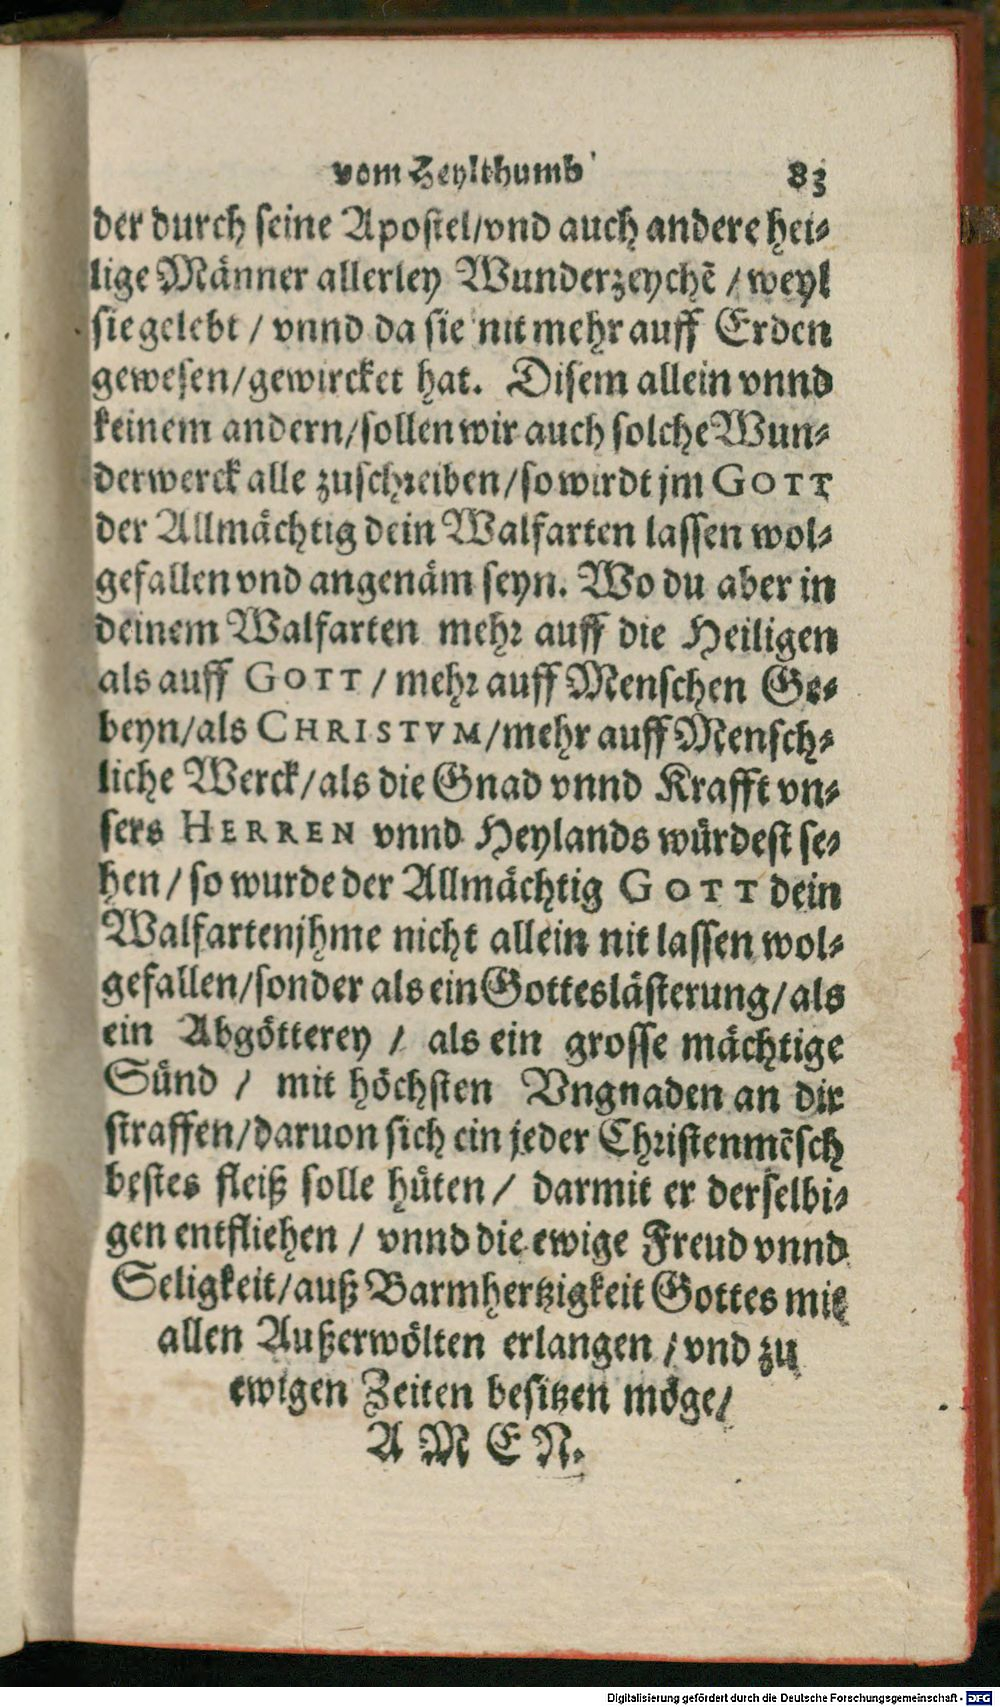 vom Heylthumb 83
der durch seine Apostel/vnd auch andere hei-
lige Männer allerley Wunderzeychē / weyl
sie gelebt / vnnd da sie nit mehr auff Erden
gewesen/gewircket hat. Disem allein vnnd
keinem andern/sollen wir auch solche Wun-
derwerck alle zuschreiben/so wirdt jm GOTT
der Allmächtig dein Walfarten lassen wol-
gefallen vnd angenäm seyn. Wo du aber in
deinem Walfarten mehr auff die Heiligen
als auff GOTT / mehr auff Menschen Ge-
beyn/als CHRISTVM/mehr auff Mensch-
liche Werck/als die Gnad vnnd Krafft vn-
sers HERREN vnnd Heylands würdest se-
hen / so wurde der Allmächtig GOTT dein
Walfarten jhme nicht allein nit lassen wol-
gefallen/sonder als ein Gotteslästerung/als
ein Abgötterey / als ein grosse mächtige
Sünd / mit höchsten Vngnaden an dir
straffen/daruon sich ein jeder Christenmēsch
bestes fleiß solle hüten / darmit er derselbi-
gen entfliehen / vnnd die ewige Freud vnnd
Seligkeit/auß Barmhertzigkeit Gottes mit
allen Außerwölten erlangen / vnd zu
ewigen Zeiten besitzen möge/
AMEN.
Digitalisierung gefördert durch die Deutsche Forschungsgemeinschaft - DFG